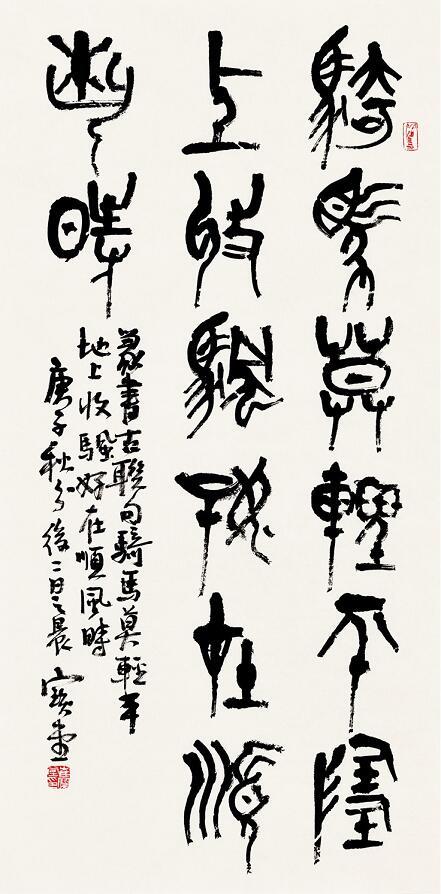 騎馬莫輕平地
上收颿好在順
風時
篆書古聯句騎馬莫輕平
地上收颿好在順風時
庚子秋分後二日之晨